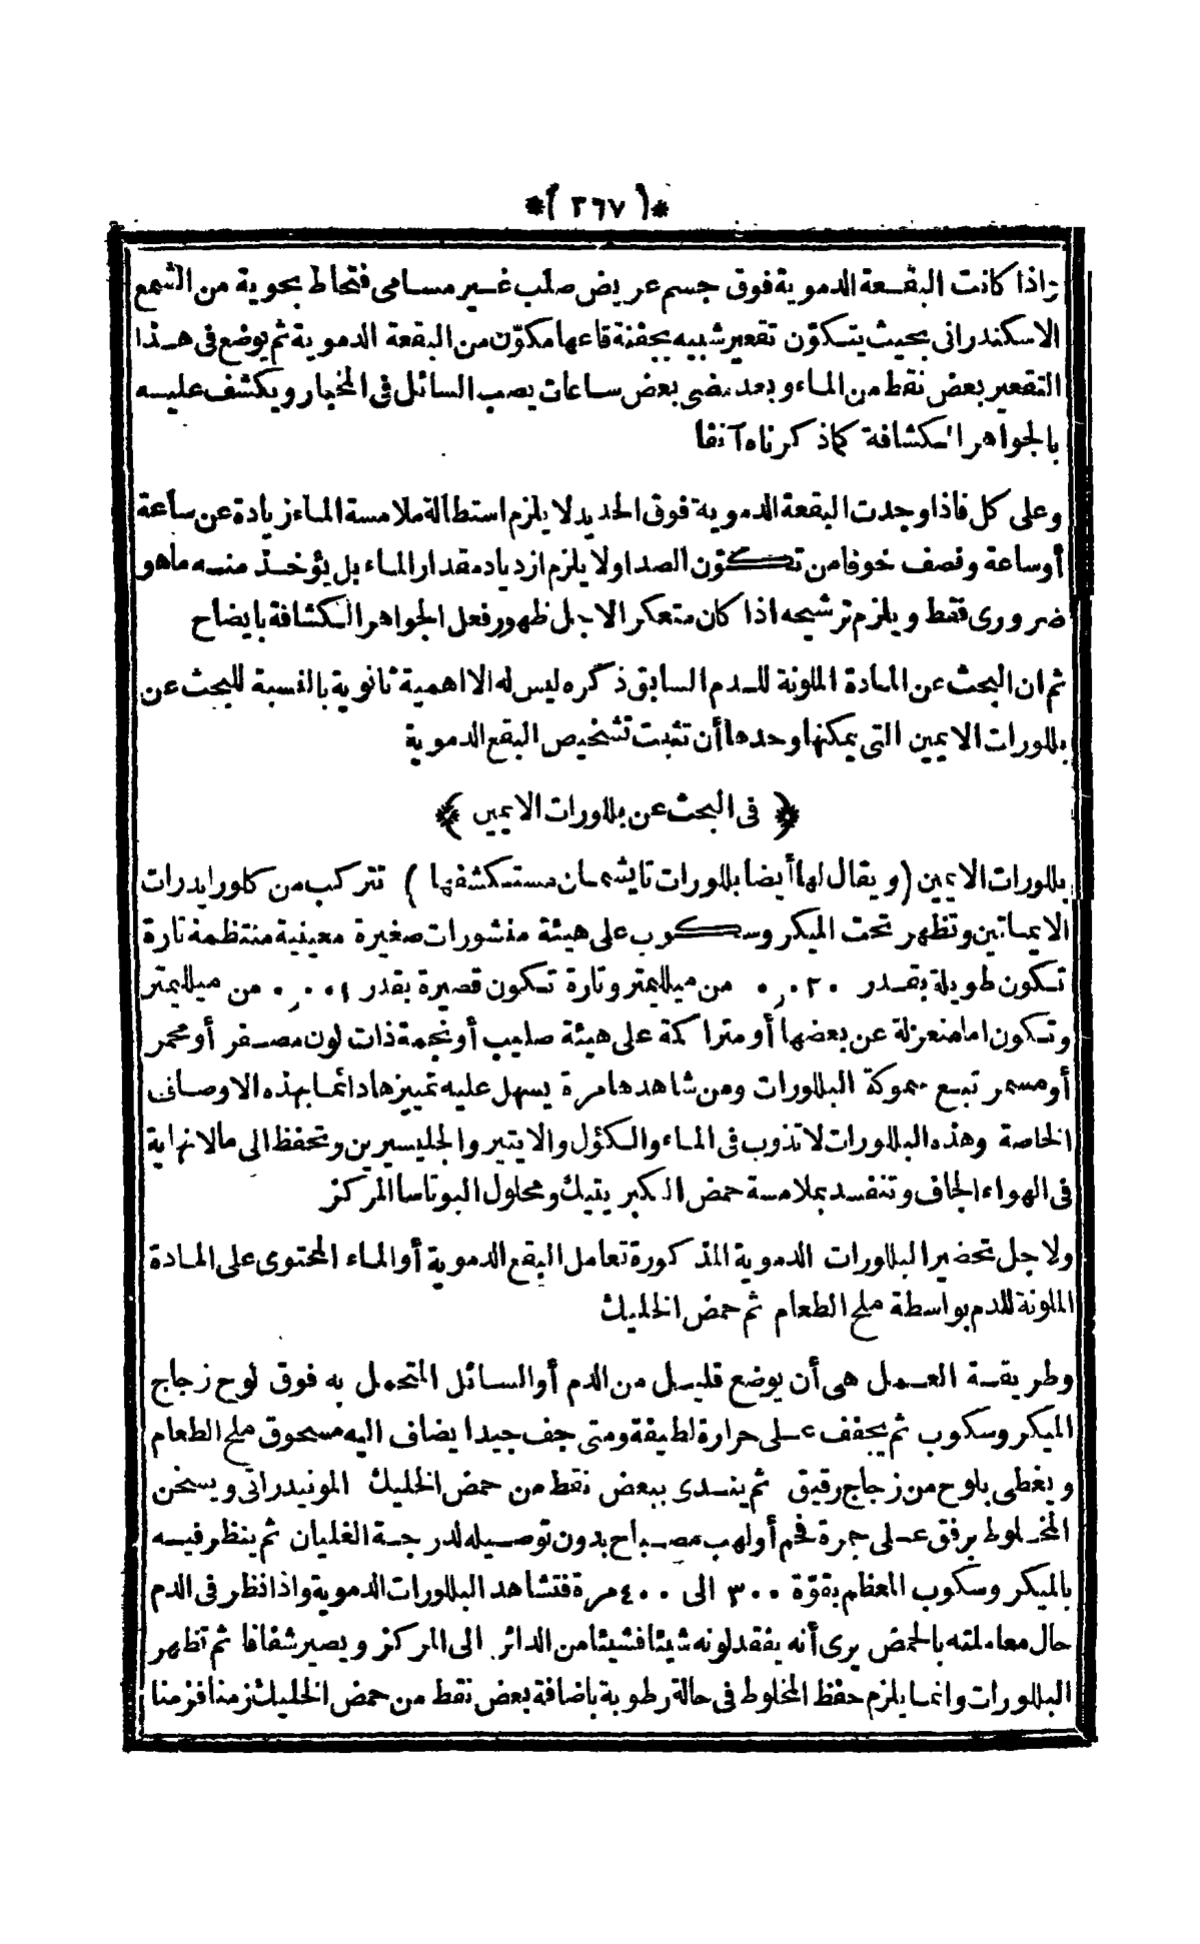 *( ٣٦٧ )*
واذا كانت البقعة الدموية فوق جسم عريض صلب غير مسامى فتحاط بحوية من الشمع
الاسكندرانى بحيث يتكوّن تقعير شبيه بجفنة قاعها مكوّن من البقعة الدموية ثم يوضع فى هذا
التقعير بعض نقط من الماء وبعد مضى بعض ساعات يصب السائل فى المخبار ويكشف عليه
بالجواهر الكشافة كما ذكرناه آنفا
وعلى كل فاذا وجدت البقعة الدموية فوق الحديد لا يلزم استطالة ملامسة الماء زيادة عن ساعة
أو ساعة ونصف خوفا من تكوّن الصدا ولا يلزم ازدياد مقدار الماء بل يؤخذ منه ما هو
ضرورى فقط ويلزم ترشيحه اذا كان متعكرا لاجل ظهور فعل الجواهر الكشافة بايضاح
ثم ان البحث عن المادة الملونة للدم السابق ذكره ليس له الا اهمية ثانوية بالنسبة للبحث عن
بللورات الايمين التى يمكنها وحدها أن تثبت تشخيص البقع الدموية
﴿ فى البحث عن بللورات الايمين ﴾
بللورات الايمين (ويقال لها أيضا بللورات تايشمان مستكشفها) تتركب من كلورايدرات
الايماتين وتظهر تحت الميكروسكوب على هيئة منشورات صغيرة معينية منتظمة تارة
تكون طويلة بقدر ٠,٠٢٠ من ميلليمتر وتارة تكون قصيرة بقدر ٠,٠٠١ من ميلليمتر
وتكون اما منعزلة عن بعضها أو متراكمة على هيئة صليب أو نجمة ذات لون مصفر أو محمر
أو مسمر تبع سموكة البللورات ومن شاهدها مرة يسهل عليه تمييزها دائما بهذه الاوصاف
الخاصة وهذه البللورات لا تذوب فى الماء والكؤل والايتير والجليسيرين وتحفظ الى ما لا نهاية
فى الهواء الجاف وتنفسد بملامسة حمض الكبريتيك ومحلول البوتاسا المركز
ولاجل تحضير البللورات الدموية المذكورة تعامل البقع الدموية أو الماء المحتوى على المادة
الملونة للدم بواسطة ملح الطعام ثم حمض الخليك
وطريقة العمل هى أن يوضع قليل من الدم أو السائل المتحمل به فوق لوح زجاج
الميكروسكوب ثم يجفف على حرارة لطيفة ومتى جف جيدا يضاف اليه مسحوق ملح الطعام
ويغطى بلوح من زجاج رقيق ثم يندى ببعض نقط من حمض الخليك المونيدراتى ويسخن
المخلوط برفق على جمرة فحم أو لهب مصباح بدون توصيله لدرجة الغليان ثم ينظر فيه
بالميكروسكوب المعظم بقوّة ٣٠٠ الى ٤٠٠ مرة فتشاهد البللورات الدموية واذا نظر فى الدم
حال معاملته بالحمض يرى أنه يفقد لونه شيئا فشيئا من الدائر الى المركز ويصير شفافا ثم تظهر
البللورات وانما يلزم حفظ المخلوط فى حالة رطوبة باضافة بعض نقط من حمض الخليك زمنا فزمنا